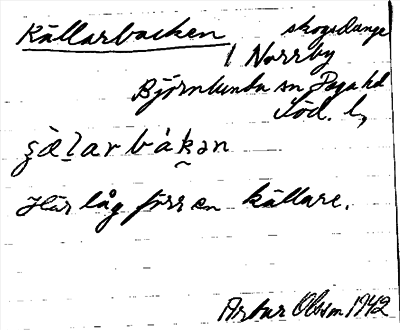 Källarbacken skogsdunge
i Norrby
Björnlunda sn Daga hd
Söd. l,
Här låg förr en källare.
Artur Olsson 1942